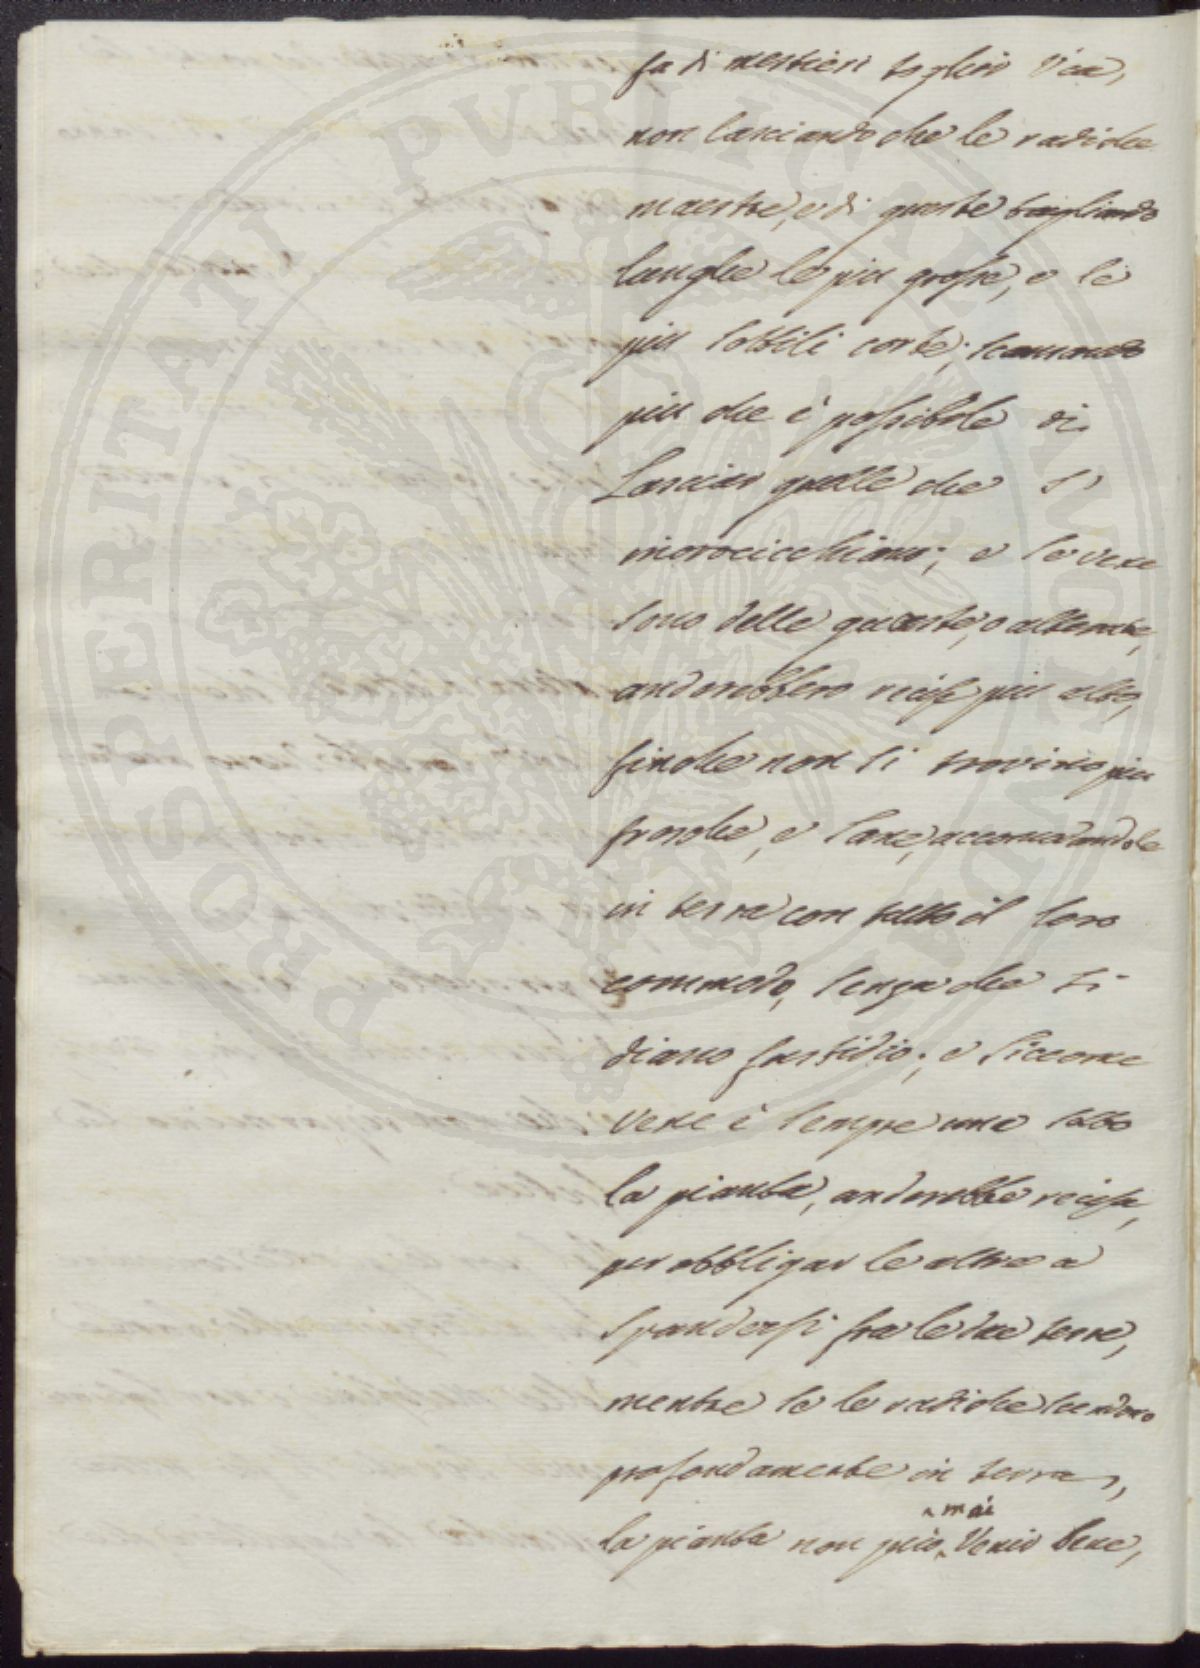 fa di mestieri toglier via,
non lasciando che le radiche
maestre, e di queste tagliando
lunghe le più grosse, e le
più sottili corte; scansando
più che è possibile di
Lasciar quelle che s'
incrocicchiano; e se vene
sono delle guaste, o alterate,
anderebbero recise più alto,
finche non si trovino più
fresche, e sane, accomodandole
in terra con tutto il loro
commodo, senza che si
diano fastidio; e siccome
vene è sempre una sotto
la pianta, anderebbe recisa,
per obbligar le altre a
spandersi fra le due terre,
mentre se le radiche scendono
profondamente in terra,
la pianta non può mai venir bene,
PROSPERITATI PVBLICAE AVGENDAE